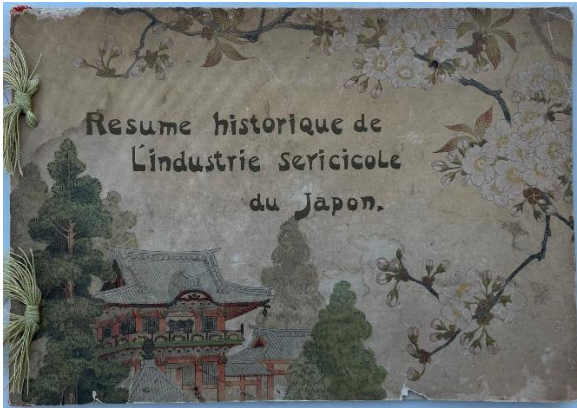 Resume historique de
L'industrie sericicole
du Japon.